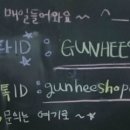 매일들어와요~ ^_
ID : GUNHEES
톡ID : gunheeshop
문의는 여기로 ~>